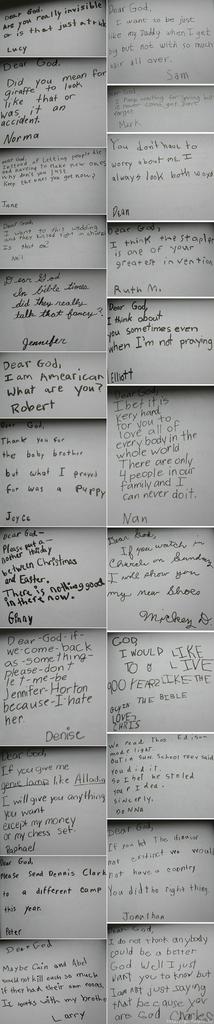 Dear God,
Are you really invisible
or is that just a trick
Lucy
Dear God,
Did you mean for
giraffe to look
like that or
was it an
accident.
Norma
Dear God,
Instead of letting people die
and haveing to make new ones
why don't you just
keep the ones you got now?
Jane
Dear God,
I went to this wedding
and they kissed right in church
Is that ok?
Neil
Dear God
In bible times
did they really
talk that fancy?
Jennifer
Dear God,
I am American
what are you?
Robert
Dear God,
Thank you for
the baby brother
but what I prayed
for was a puppy
Joyce
Dear God-
Please put a-
nother holiday
between Christmas
and Easter.
There is nothing good
in there now.
Ginny
Dear-God-if-
we-come-back
as-something-
please-don't
let-me-be
Jennifer-Horton
because-I-hate
her.
Denise
Dear God,
If you give me
genie lamp like Alladin
I will give you anything
you want
except my money
or my chess set.
Raphael
Dear God,
please send Dennis Clark
to a different camp
this year.
Peter
Dear God
Maybe Cain and Abel
would not kill each so much
if they had their own rooms.
It works with my brother
Larry
Dear God,
I want to be just
like my Daddy when I get
big but not with so much
hair all over.
Sam
Dear God,
I keep waiting for spring but
it never come yet. Don't
forget.
Mark
You don't have to
worry about me I
always look both ways
Dean
Dear God,
I think the stapler
is one of your
greatest invention
Ruth M.
Dear God,
I think about
you sometimes even
when I'm not praying
Elliott
Dear God,
I bet it is
very hard
for you to
love all of
every body in the
whole world
There are only
4 people in our
family and I
can never do it.
Nan
Dear God,
If you watch in
Church on Sunday
I will show you
my new shoes
Mickey D.
GOD,
I WOULD LIKE
TO LIVE
900 YEARS LIKE THE
GUY IN THE BIBLE
LOVE,
CHRIS
We read Thos. Edison
made light.
But in Sun. School they said
you did it.
So I bet he stoled
your idea.
Sincerly,
DONNA
Dear God,
If you let the dinasor
not exstinct we would
not have a country
You did the right thing.
Jonathan
Dear God,
I do not think anybody
could be a better
God Well I just
want you to know but
I am not just saying
that because you
are God
Charles